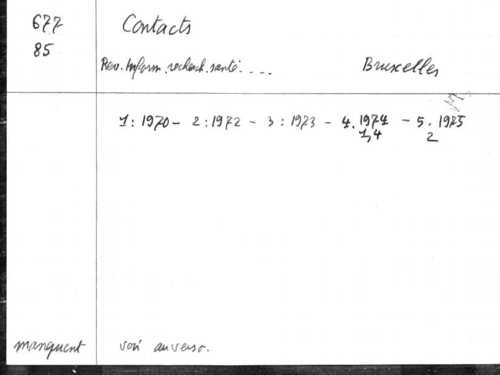 677 Contacts
85
Rev. Inform. recherch. santé.... Bruxelles
1: 1970 - 2: 1972 - 3: 1973 - 4. 1974 - 5. 1975
1,4 2
manquent voir au verso.